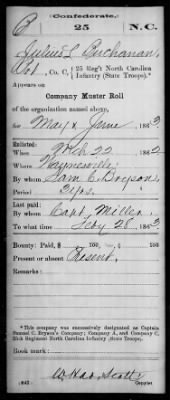 Confederate.
B 25 N.C.
Julius L Buchanan,
Pvt, Co. C, 25 Reg't North Carolina
Infantry (State Troops).*
Appears on
Company Muster Roll
of the organization named above,
for May & June, 1863.
Enlisted:
When 22, 1862
Where Waynesville
By whom Sam C. Bryson
Period 2 yrs.
Last paid:
By whom Capt Miller
To what time Feby 28, 1863
Bounty: Paid, $ 100; due, $ 100
Present or absent Present.
Remarks:
*This company was successively designated as Captain
Samuel C. Bryson's Company; Company A, and Company C,
25th Regiment North Carolina Infantry (State Troops).
Book mark:
(642) Copyist.